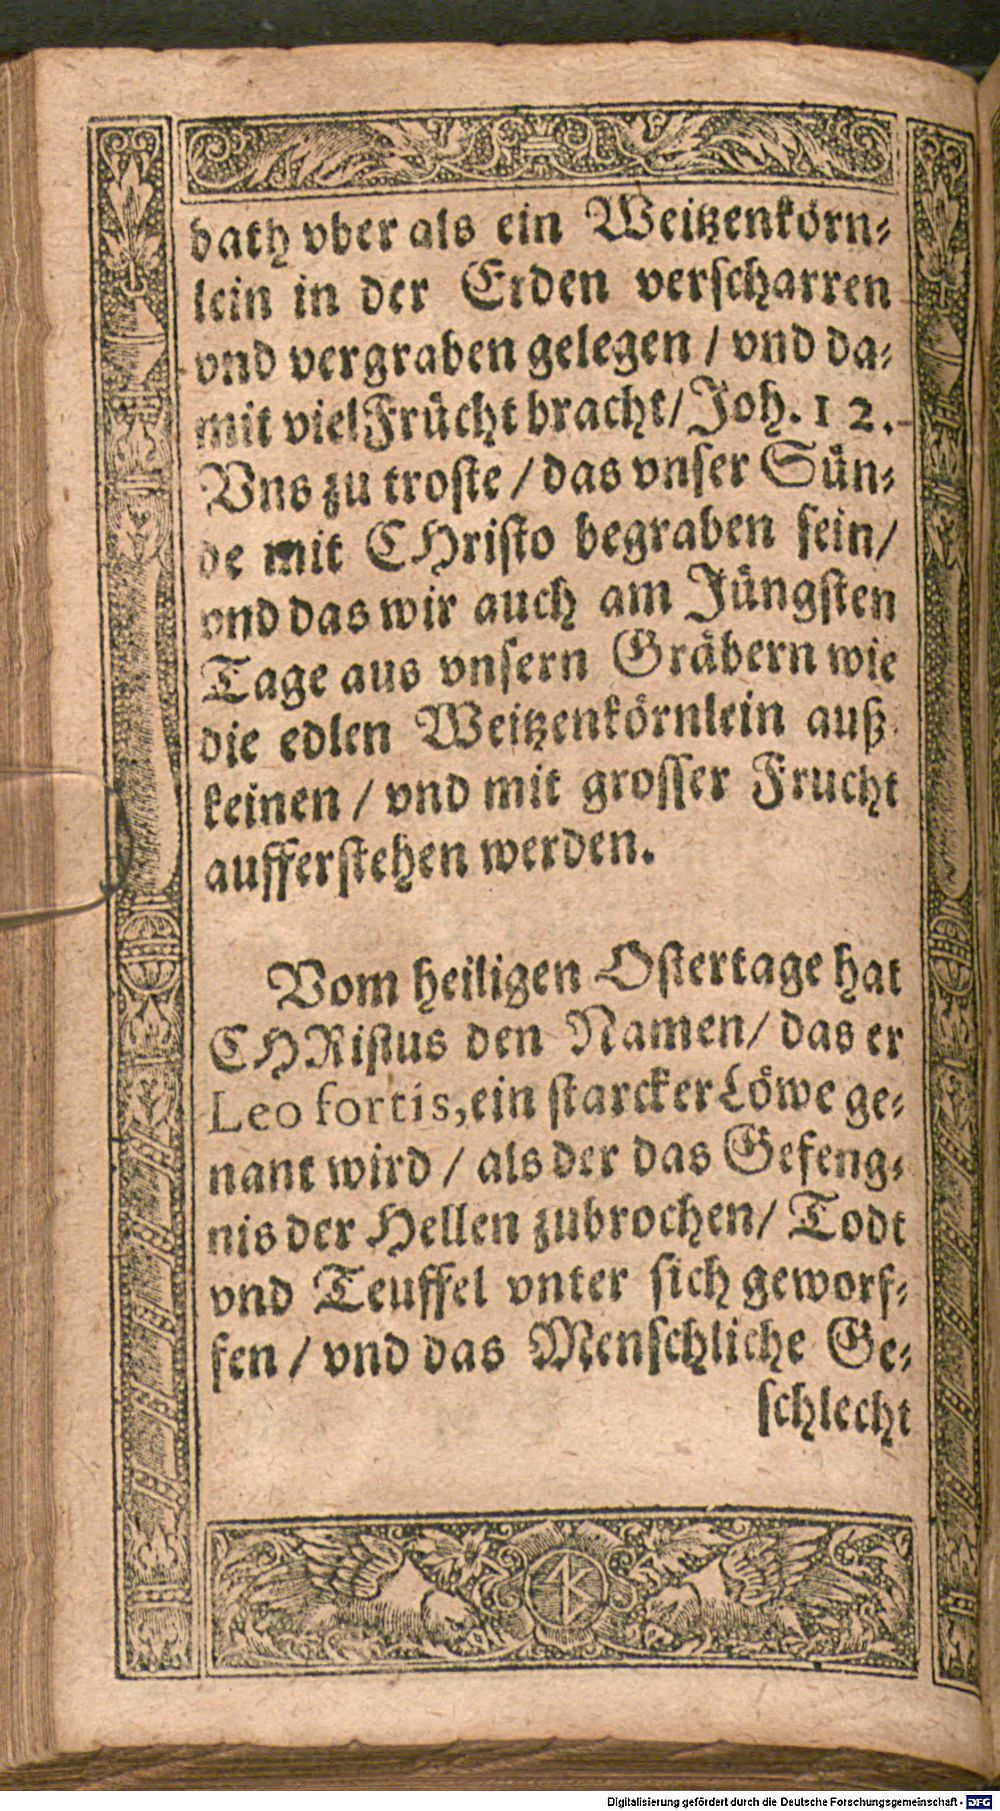 bath vber als ein Weitzenkörn⸗
lein in der Erden verscharren
vnd vergraben gelegen / vnd da⸗
mit viel Frücht bracht / Joh. 12.
Vns zu troste / das vnser Sün⸗
de mit CHristo begraben sein /
vnd das wir auch am Jüngsten
Tage aus vnsern Gräbern wie
die edlen Weitzenkörnlein auß
keinen / vnd mit grosser Frucht
aufferstehen werden.
Vom heiligen Ostertage hat
CHRistus den Namen / das er
Leo fortis, ein starcker Löwe ge⸗
nant wird / als der das Gefeng⸗
nis der Hellen zubrochen / Todt
vnd Teuffel vnter sich geworf⸗
fen / vnd das Menschliche Ge⸗
schlecht
Digitalisierung gefördert durch die Deutsche Forschungsgemeinschaft - DFG